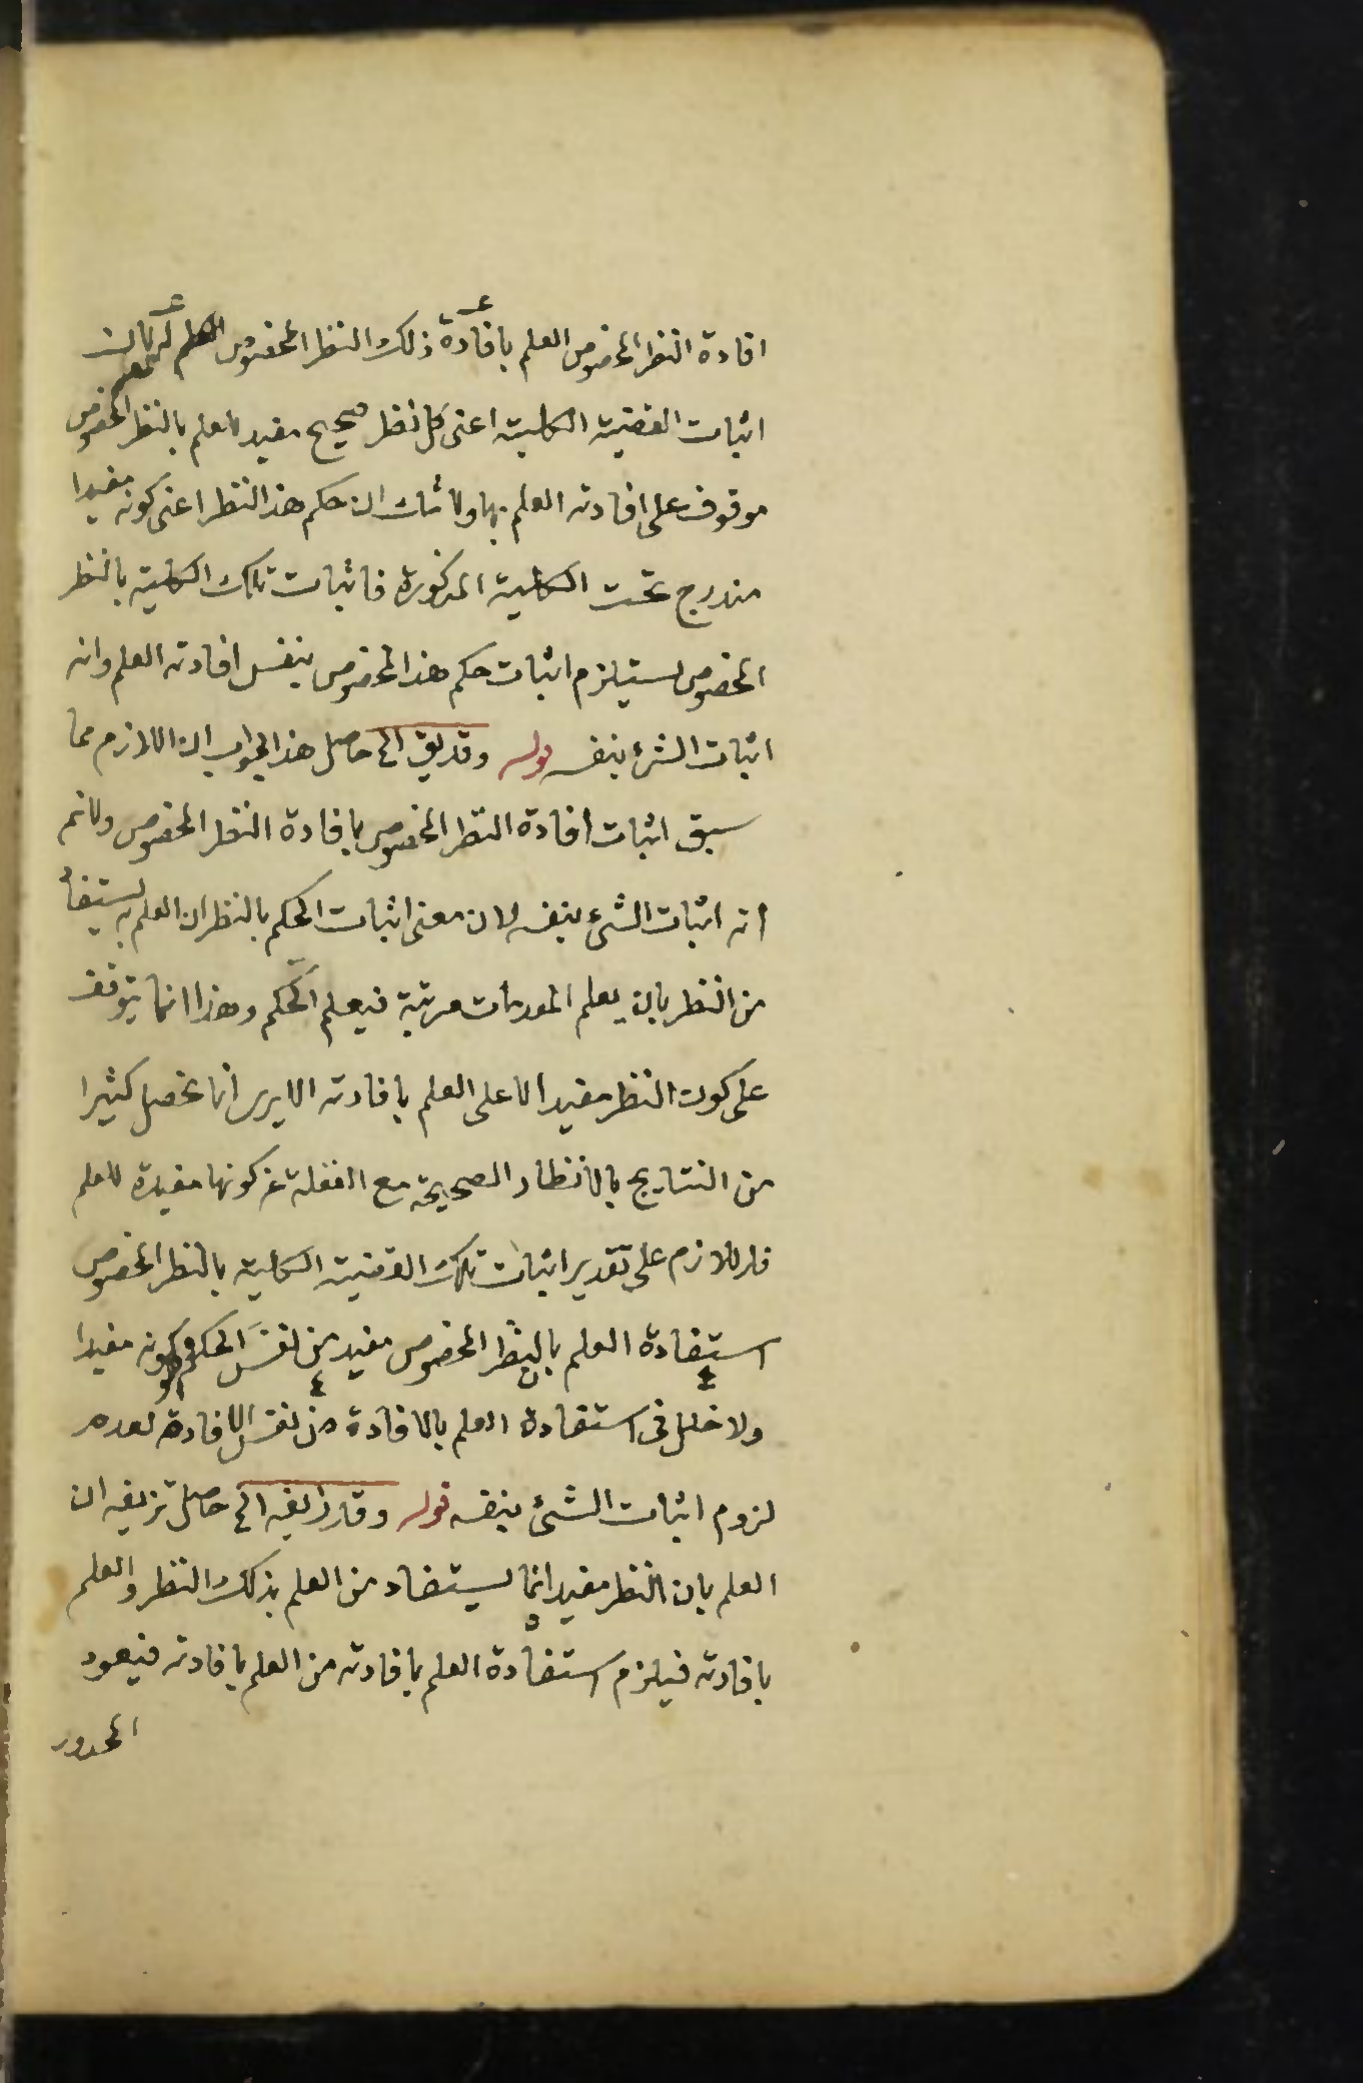 افادة النظر المخصوص العلم بافادة ذلك النظر المخصوص العلم لان
اثبات القضية الكلية اعنى كل نظر صحيح مفيد للعلم بالنظر المخصوص
موقوف على افادته العلم بها ولا شك ان حكم هذا النظر اعنى كونه مفيدا
مندرج تحت الكلية المذكورة فاثبات تلك الكلية بالنظر
المخصوص يستلزم اثبات حكم هذا المخصوص بنفس افادته العلم وانه
اثبات الشئ بنفسه قوله وقد يق الخ حاصل هذا الجواب ان اللازم مما
سبق اثبات افادة النظر المخصوص بافادة النظر المخصوص ولانم
انه اثبات الشئ بنفسه لان معنى اثبات الحكم بالنظر ان العلم به يستفا
من النظر بان يعلم المقدمات مرتبة فيعلم الحكم وهذا انما يتوقف
على كون النظر مفيدا لا على العلم بافادته الا يرى انا نحصل كثيرا
من النتايج بالانظار الصحيحة مع الغفلة عن كونها مفيدة للعلم
فاللازم على تقدير اثبات تلك القضية الكلية بالنظر المخصوص
استفادة العلم بان النظر المخصوص مفيد من نفس الحكم وكونه مفيدا
ولا خلل فى استفادة العلم بالافادة من نفس الافادة لعدم
لزوم اثبات الشئ بنفسه قوله وقد زيفه الخ حاصل تزييفه ان
العلم بان النظر مفيد انما يستفاد من العلم بذلك النظر والعلم
بافادته فيلزم استفادة العلم بافادته من العلم بافادته فيعود
المحدور